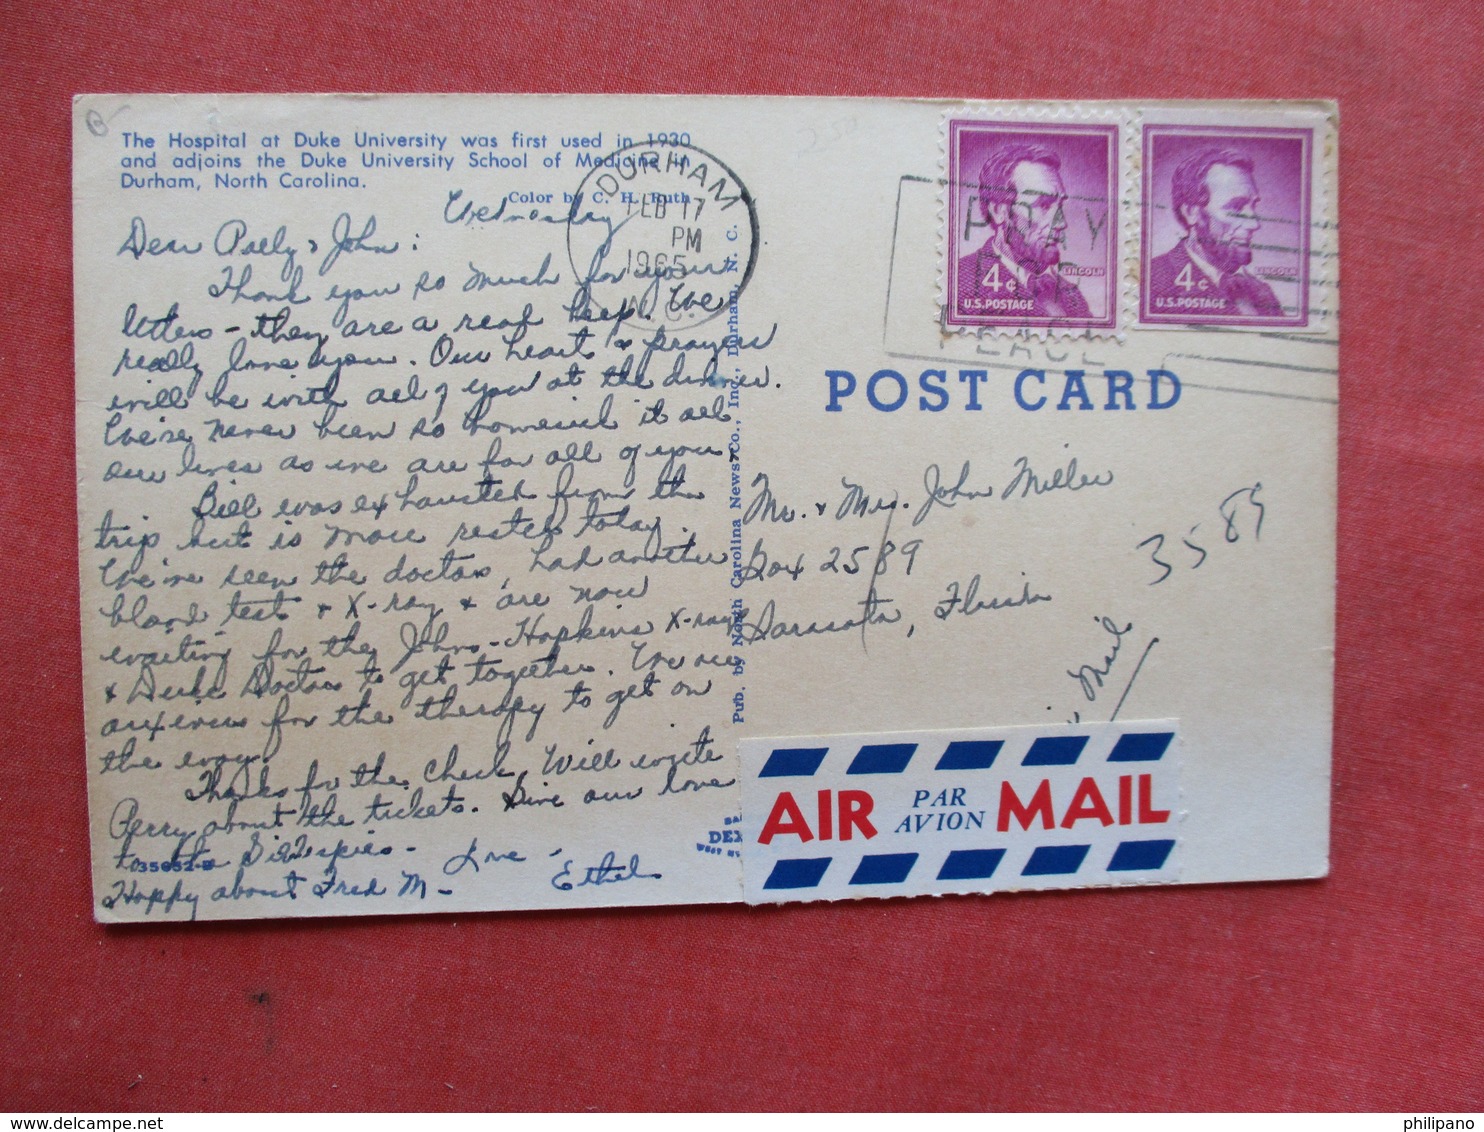 The Hospital at Duke University was first used in 1930
and adjoins the Duke University School of Medicine in
Durham, North Carolina.
Color by C. H. Ruth
Wednesday
Dear Polly & John:
Thank you so much for your
letters - they are a real help. We
really love you. Our hearts & prayers
will be with all of you at the dinner.
We've never been so homesick in all
our lives as we are for all of you.
Bill was exhausted from the
trip but is more rested today.
We've seen the doctors, had another
blood test & X-ray & are now
waiting for the Johns-Hopkins X-rays
& Duke Doctors to get together. We are
anxious for the therapy to get on
the way.
Thanks for the check. Will write
Perry about the tickets. Give our love
to the Gillespies -
Love -
Happy about Fred M -
Ethel
035652-B
DURHAM
FEB 17
PM
1965
N.C.
Pub. by North Carolina News Co., Inc., Durham, N. C.
PRAY
FOR
PEACE
4¢
LINCOLN
U.S. POSTAGE
4¢
LINCOLN
U.S. POSTAGE
POST CARD
Mr. & Mrs. John Miller
Box 2589
Sarasota, Florida
3589
Mail
DEX
WEST
AIR PAR AVION MAIL
philipano